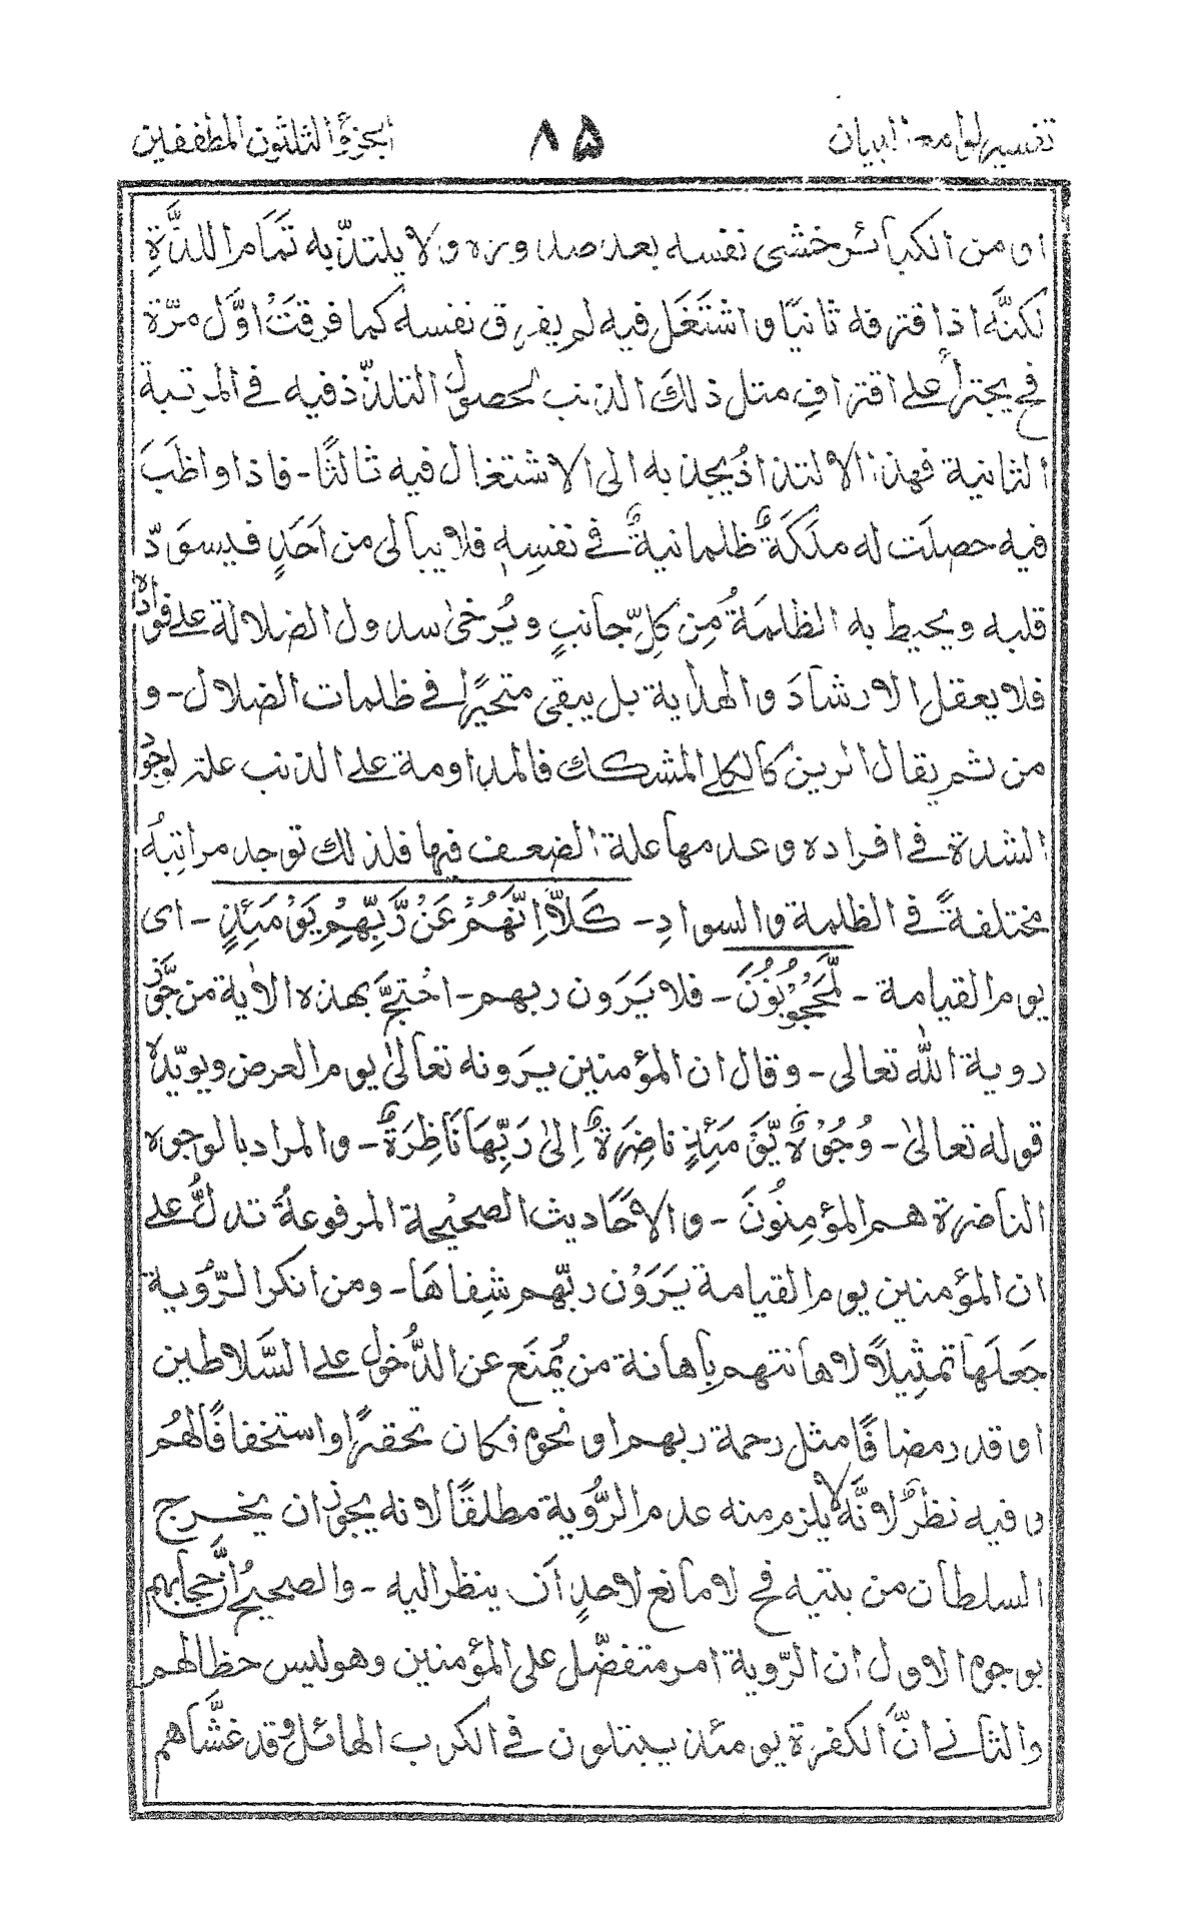 تفسير لوامع البيان ٨٥ الجزءُ الثلثون المطففين
او من الكبائر خشى نفسه بعد صدوره ولا يلتذّ به تَمَام اللذَّةِ
لكنَّه اذا اقترفه ثانيًا واشتَغَل فيه لم يفرق نفسه كما فرقَتْ اوَّل مرّة
فح يجترأ على اقترافِ مثل ذلكَ الذنب لحصول التلذّذ فيه فى المرتبة
الثانية فهذا الالتذاذُ يجذبه الى الاشتغال فيه ثالثًا - فاذا واظَبَ
فيه حصلَت له ملَكَةٌ ظلمانيةٌ فى نفسِهٖ فلا يبالى من اَحَدٍ فيسوَدّ
قلبه ويحيط به الظلمَةُ مِن كلِّ جانبٍ ويُرخىٰ سدول الضلالة على فواده
فلا يعقل الارشادَ والهداية بل يبقى متحيًّرا فى ظلمات الضلال - و
من ثم يقال الرين كالكلى المشكك فالمداومة على الذنب علة لوجود
الشدة فى افراده وعدمها علة الضعف فيها فلذلك توجد مراتبُه
مختلفةً فى الظلمة والسوادِ - كَلَّآ اِنَّهُمْ عَنْ رَّبِّهِمْ يَوْمَئِذٍ - اى
يوم القيامة - لَّمَحْجُوْبُوْنَ - فلا يَرَون ربهم - احْتجَّ بهذه الاٰية من جَّوز
روية الله تعالى - وقال ان المؤمنين يرونه تعالىٰ يوم العرض ويويّده
قوله تعالىٰ - وُجُوْهٌ يَّوْمَئِذٍ ناضِرَةٌ اِلىٰ رَبِّهَا نَاظِرَةٌ - والمراد بالوجوه
الناضرة هم المؤمِنُونَ - والاحَاديث الصحيْحة المرفوعةُ تدلُّ على
ان المؤمنين يوم القيامة يَرَوْن ربّهم شِفاهَا - ومن انكر الرُّوية
جَعلَها تمثِيلاً لاهانتهم بِاهانة من يُمنَع عن الدُّخول على السَّلاطين
او قدر مضافًا مثل رحمة ربهم او نحوه فكان تحقيرًا واستخفافًا لهُم
وفيه نظرٌ لانَّه لا يلزم منه عدم الرُّوية مطلقًا لانه يجوز ان يخرج
السلطان من بيتيه فح لا مانع لاحدٍ اَن ينظر اليه - والصحيحُ انَّ حجابهم
بوجوه الاول ان الرّوية امر متفضَّل على المؤمنين وهو ليس حظا لهم
والثانى انّ الكفرة يومئذ يبتلون فى الكرب الهائل وقد غشَّاهم